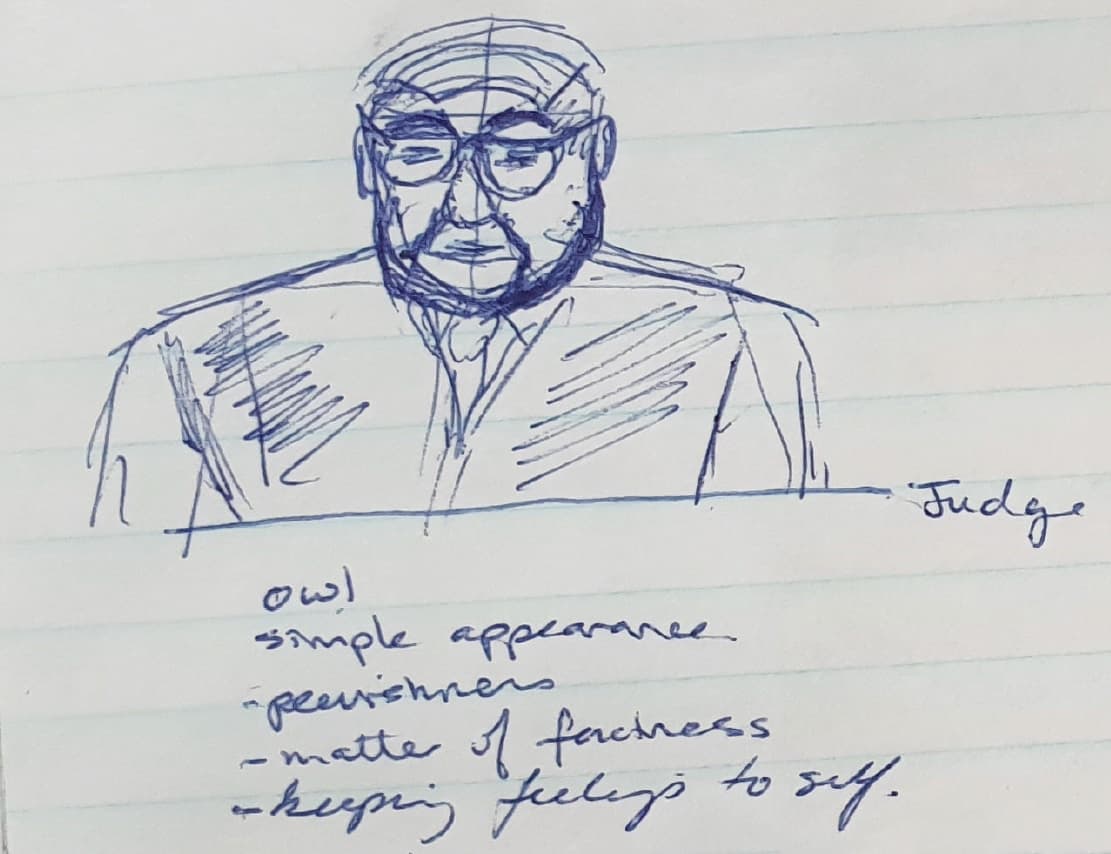 Judge
owl
simple appearance
- peevishness
- matter of factness
- keeping feelings to self.